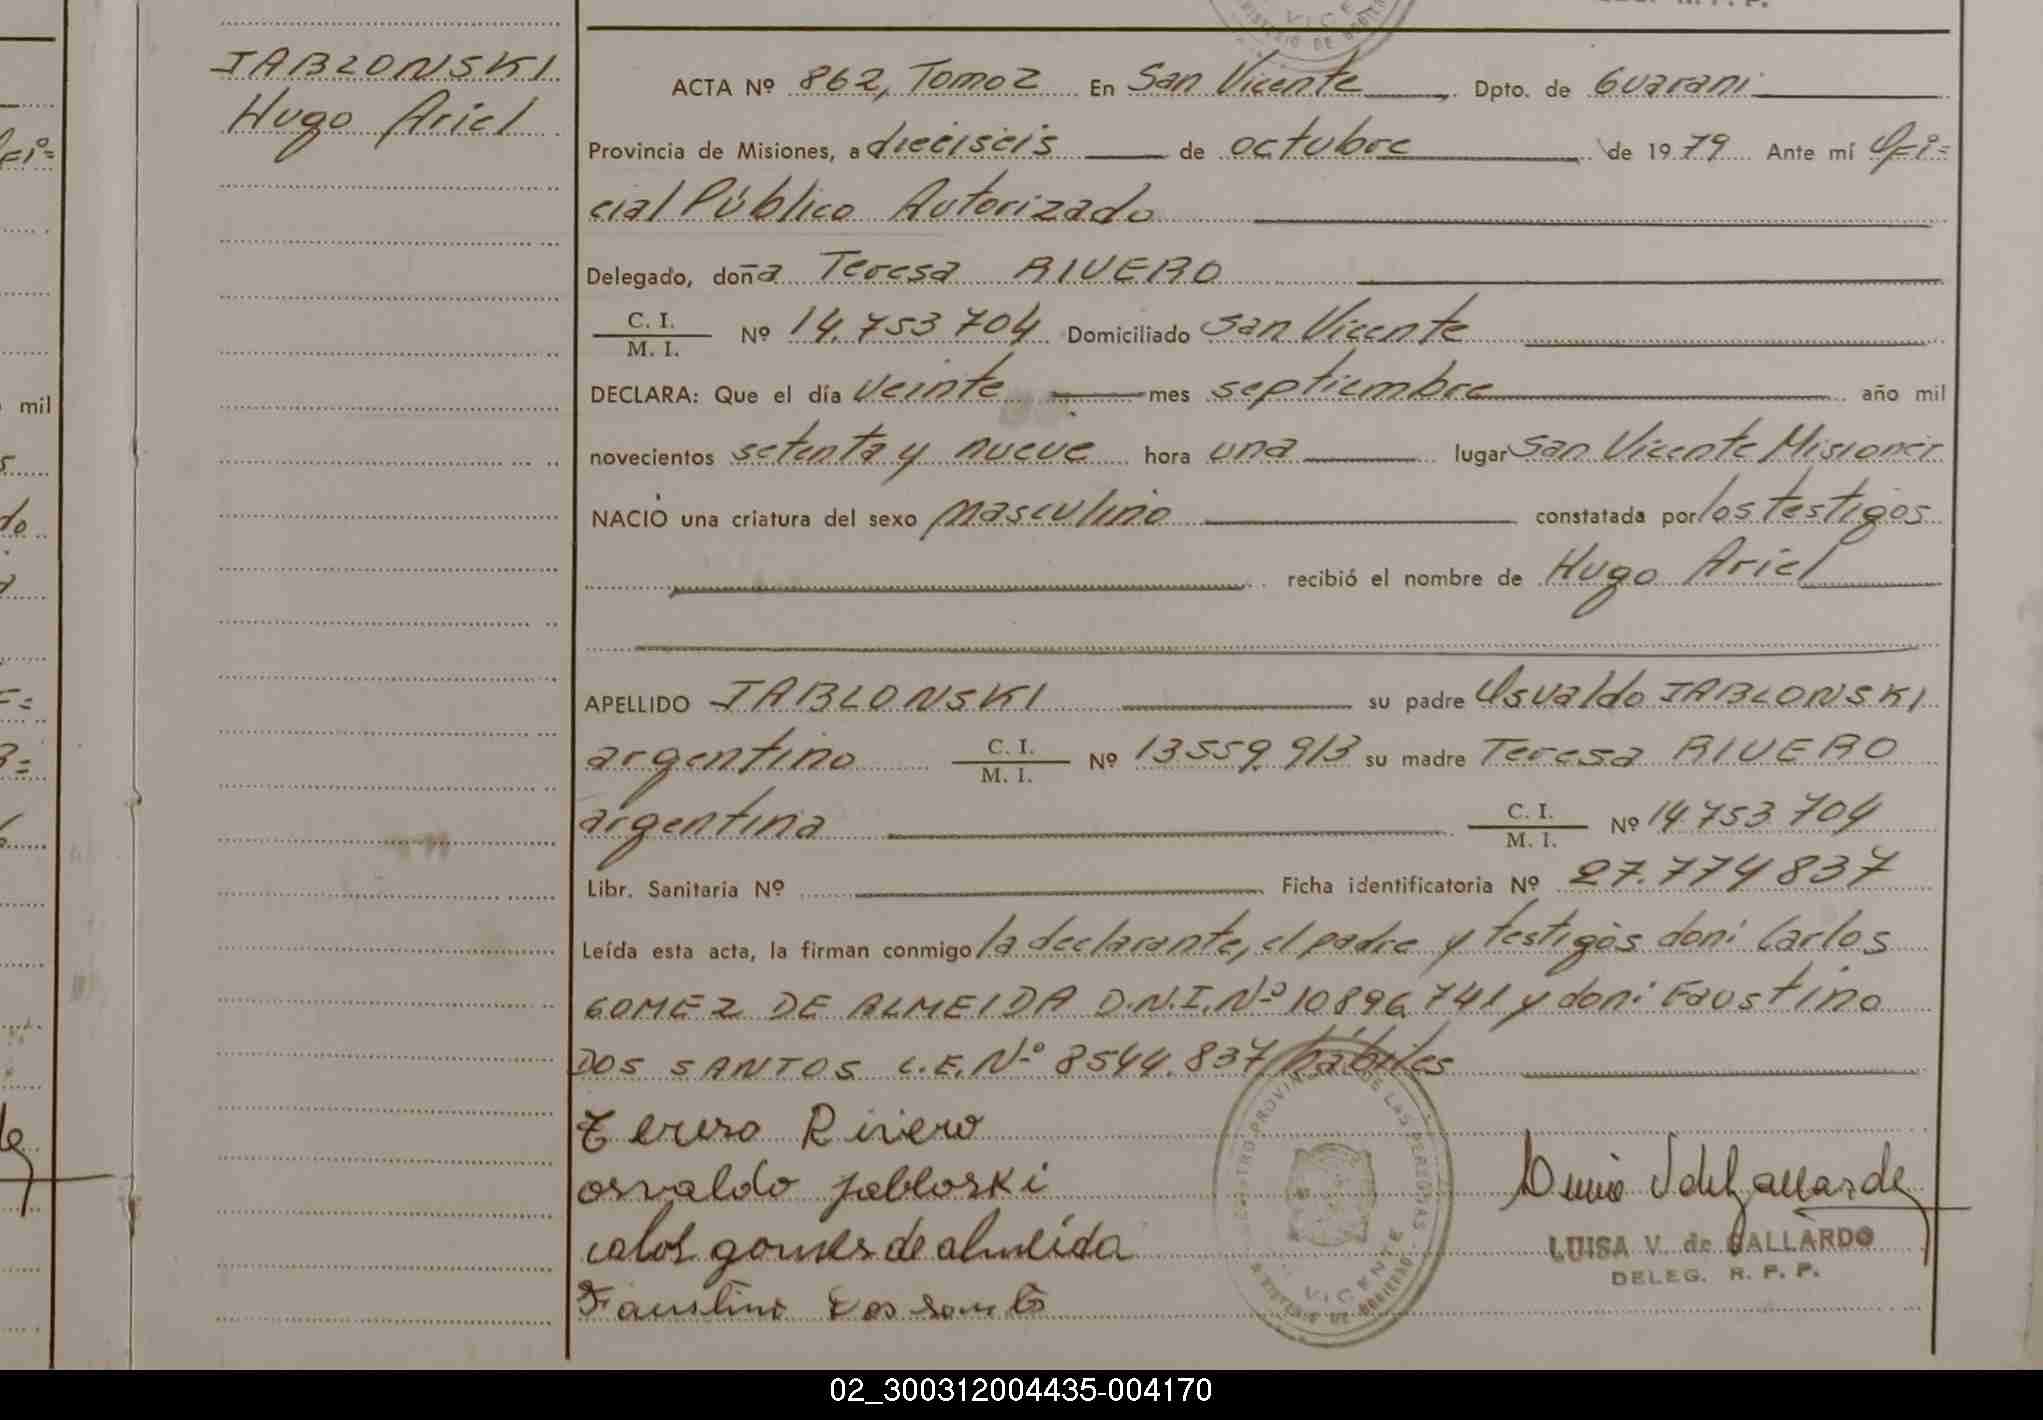 JABLONSKI
Hugo Ariel
ACTA Nº 862, Tomo 2 En San Vicente, Dpto. de Guarani
Provincia de Misiones, a dieciseis de octubre de 1979 Ante mí Ofi=
cial Público Autorizado
Delegado, doña Teresa RIVERO
C. I. / M. I. Nº 14.753 704 Domiciliado San Vicente
DECLARA: Que el día veinte mes septiembre año mil
novecientos setenta y nueve hora una lugar San Vicente Misiones
NACIÓ una criatura del sexo masculino constatada por los testigos
recibió el nombre de Hugo Ariel
APELLIDO JABLONSKI su padre Osvaldo JABLONSKI
argentino C. I. / M. I. Nº 13559.913 su madre Teresa RIVERO
argentina C. I. / M. I. Nº 14753 704
Libr. Sanitaria Nº Ficha identificatoria Nº 27.774837
Leída esta acta, la firman conmigo la declarante, el padre y testigos don: Carlos
GOMEZ DE ALMEIDA D.N.I. Nº 10896.741 y don: Faustino
DOS SANTOS L.E. Nº 8544.837 hábiles
Teresa Rivero
osvaldo jabloski
calos gomes de almeida
Faustino Dos
LUISA V. de GALLARDO
DELEG. R. P. P.
REGISTRO PROVINCIAL DE LAS PERSONAS
VICENTE
MINISTERIO DE GOBIERNO
mil
02_300312004435-004170